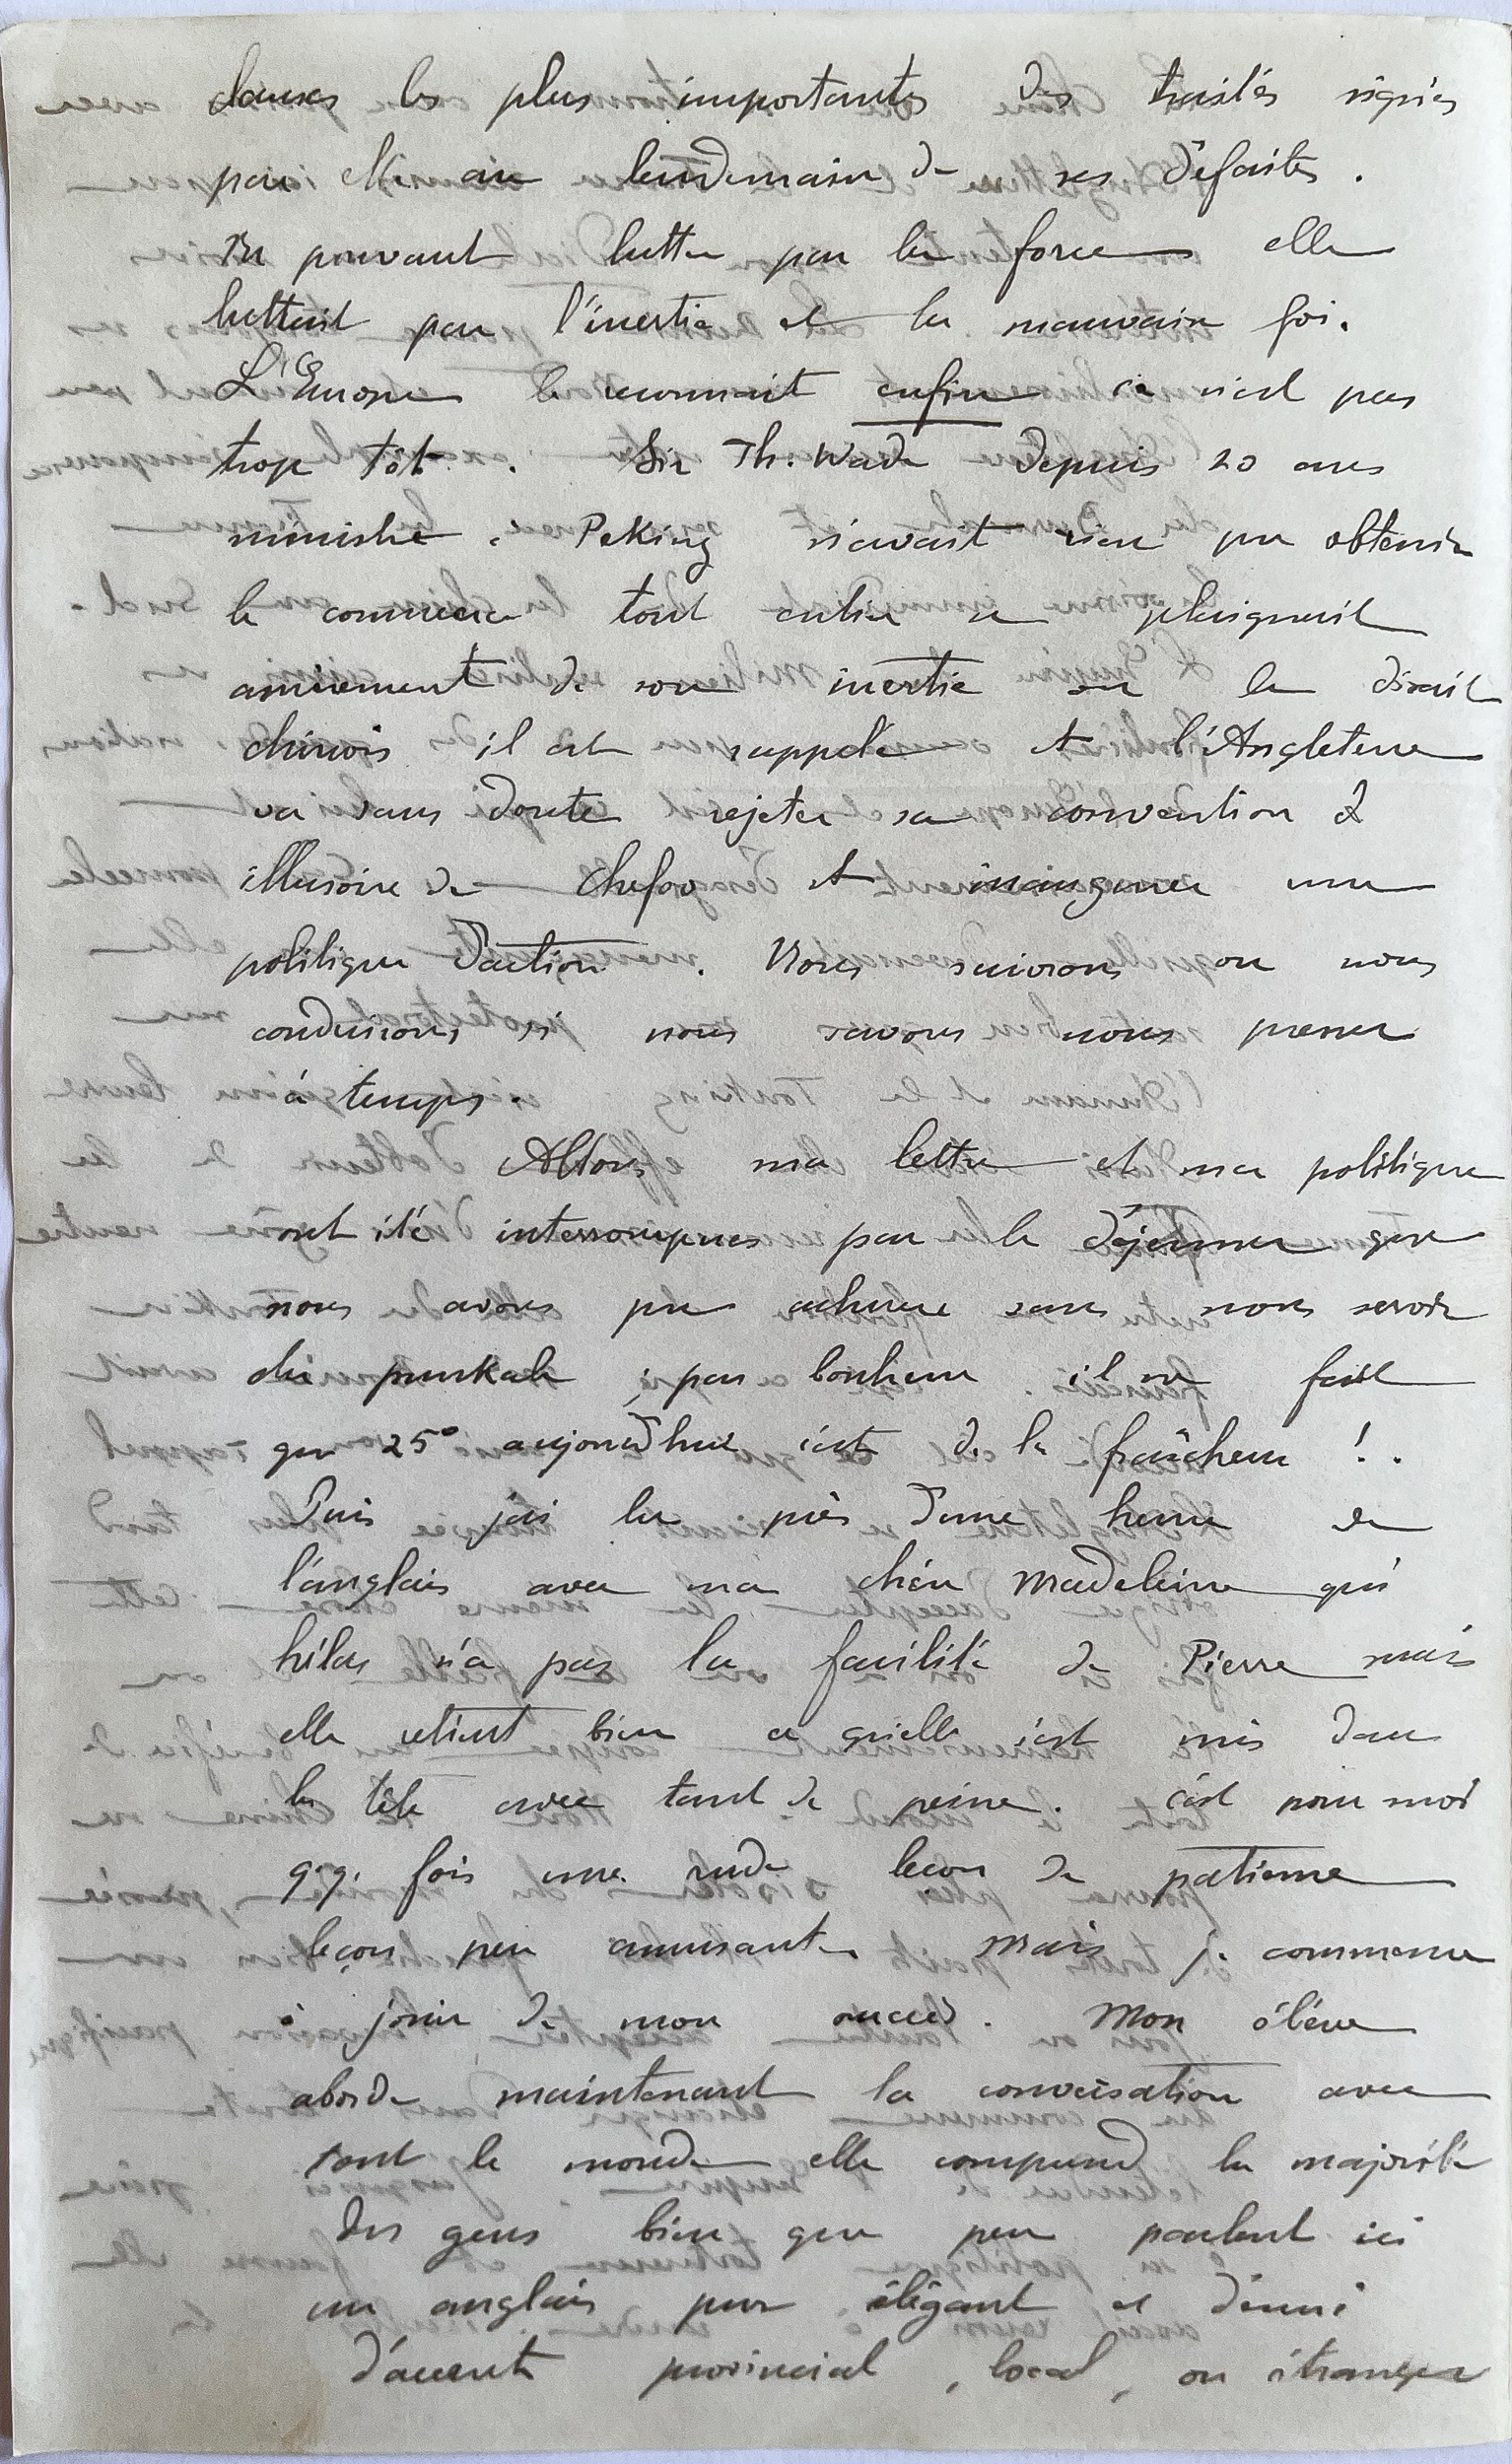 clauses les plus importantes des traités signés
par elle au lendemain de ses défaites.
Ne pouvant lutter par la force elle
luttait par l'inertie et la mauvaise foi.
L'Europe le reconnait enfin ce n'est pas
trop tôt. Sir Th. Wade depuis 20 ans
ministre à Peking n'avait rien pu obtenir
le commerce tout entier se plaignait
amèrement de son inertie on le disait
chinois il est rappelé et l'Angleterre
va sans doute rejeter sa convention
illusoire de Chefoo et inaugurer une
politique d'action. Nous suivrons ou nous
conduirons si nous savons nous presser
à temps.
Allons ma lettre et ma politique
ont été interrompues par le déjeuner que
nous avons pu achever sans nous servir
du punkah ; par bonheur il ne fait
que 25° aujourd'hui c'est de la fraîcheur !.
Puis j'ai lu près d'une heure de
l'anglais avec ma chère Madeleine qui
hélas n'a pas la facilité de Pierre mais
elle retient bien ce qu'elle s'est mis dans
la tête avec tant de peine. C'est pour moi
q.q. fois une rude leçon de patience
leçon peu amusante. Mais je commence
à jouir de mon succès. Mon élève
aborde maintenant la conversation avec
tout le monde elle comprend la majorité
des gens bien que peu parlent ici
un anglais pur élégant et dénué
d'accent provincial, local, ou étranger